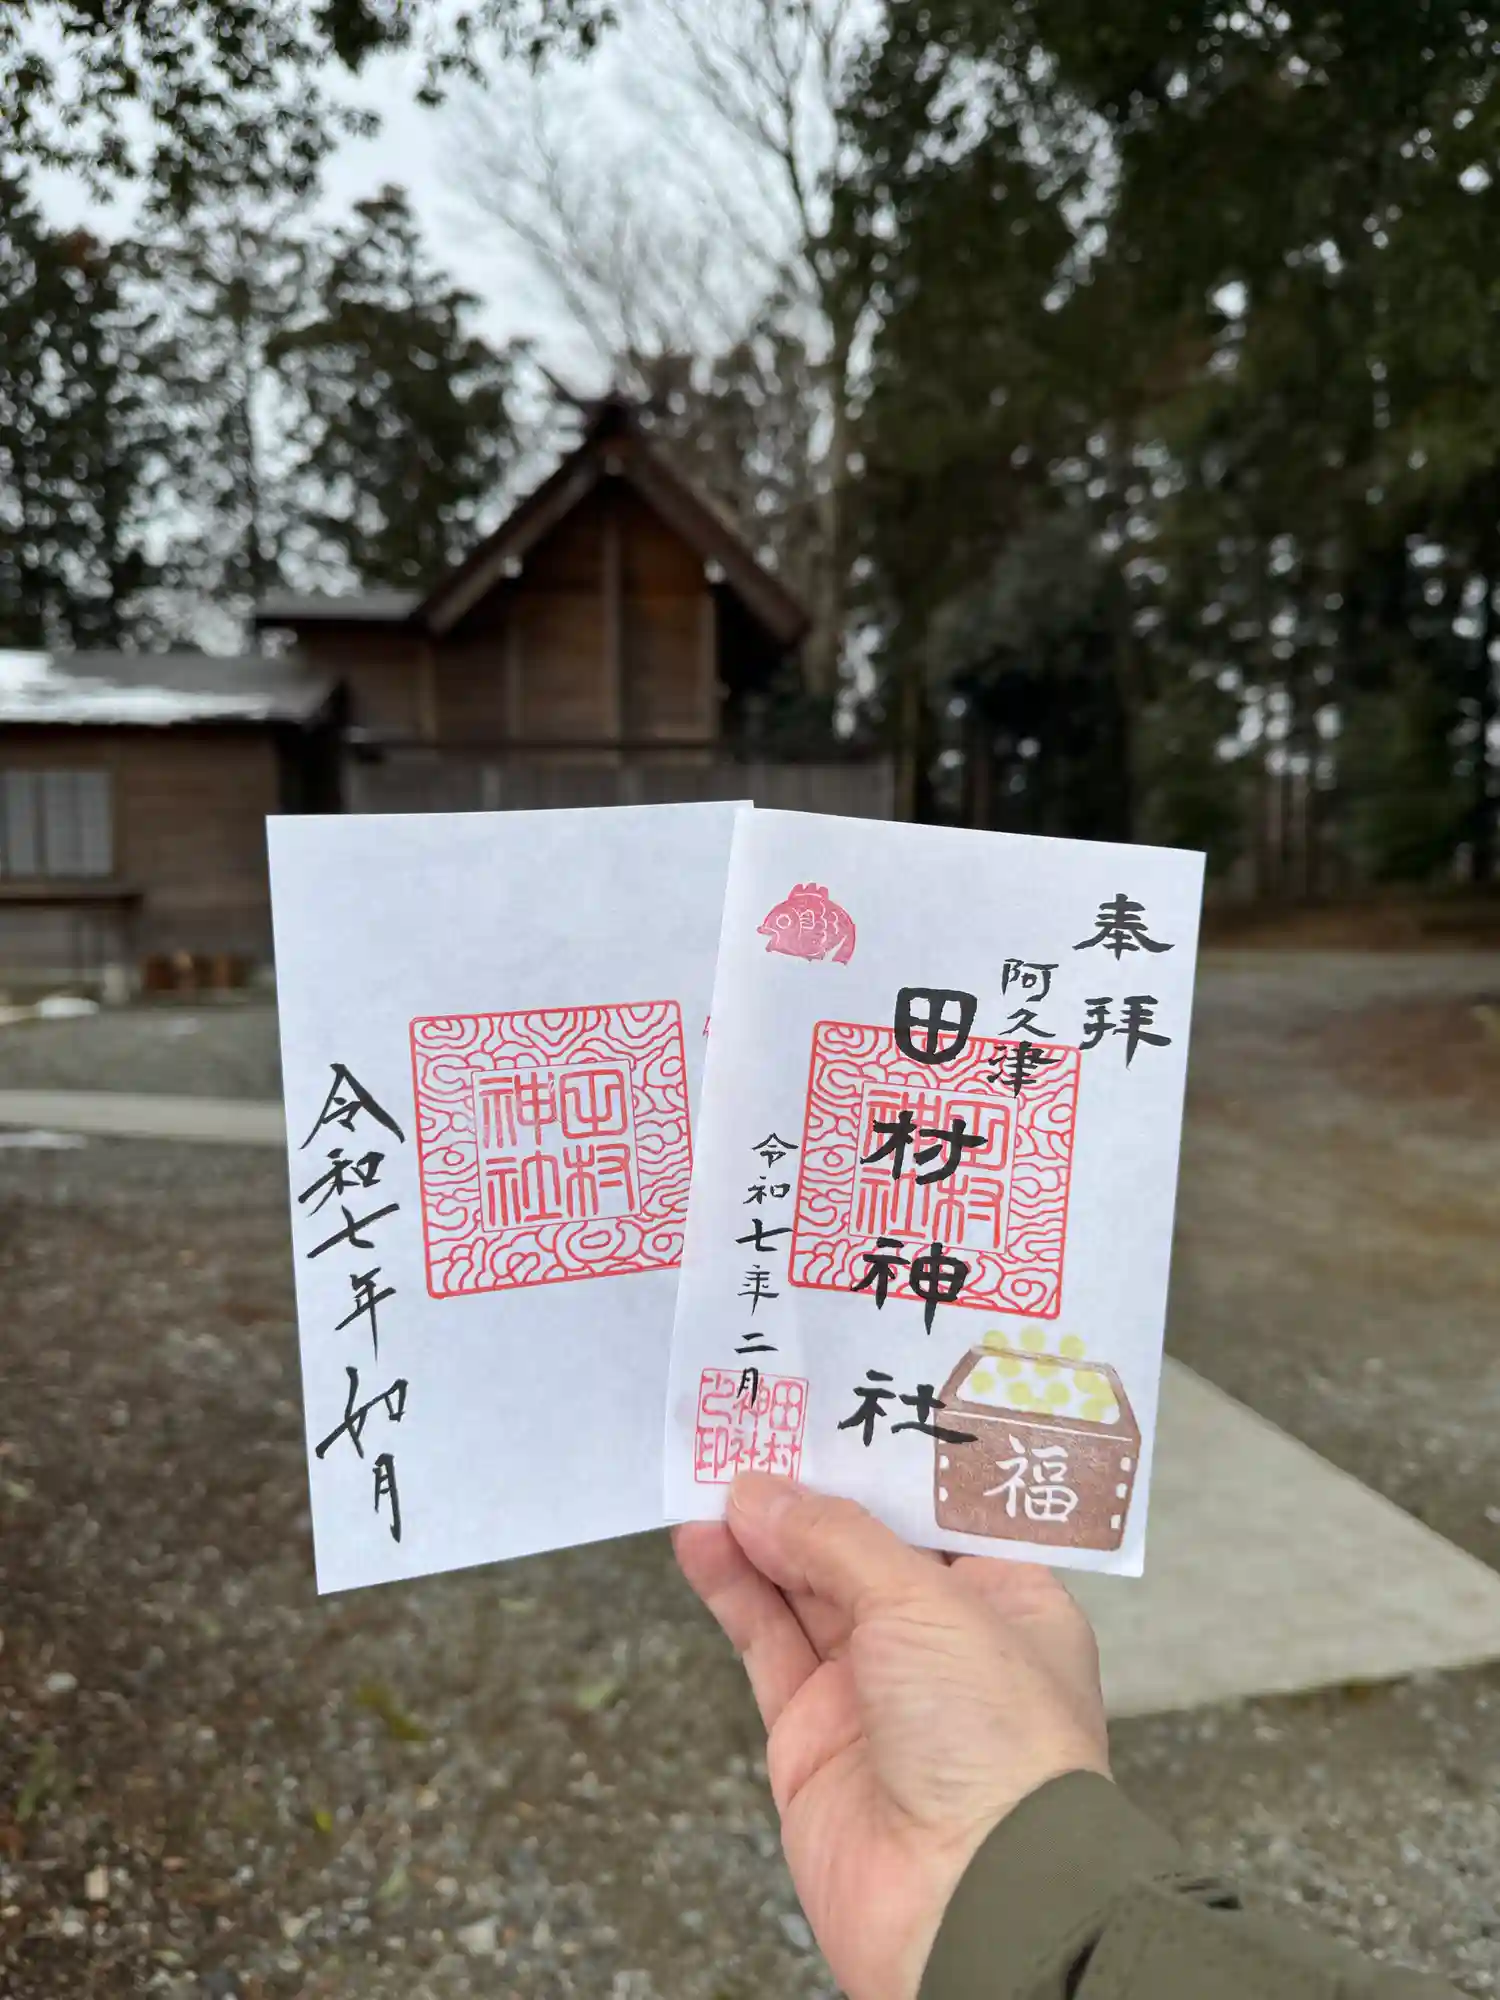 奉拝
阿久津
田村神社
令和七年二月
田村神社
田村神社之印
福
田村神社
令和七年如月